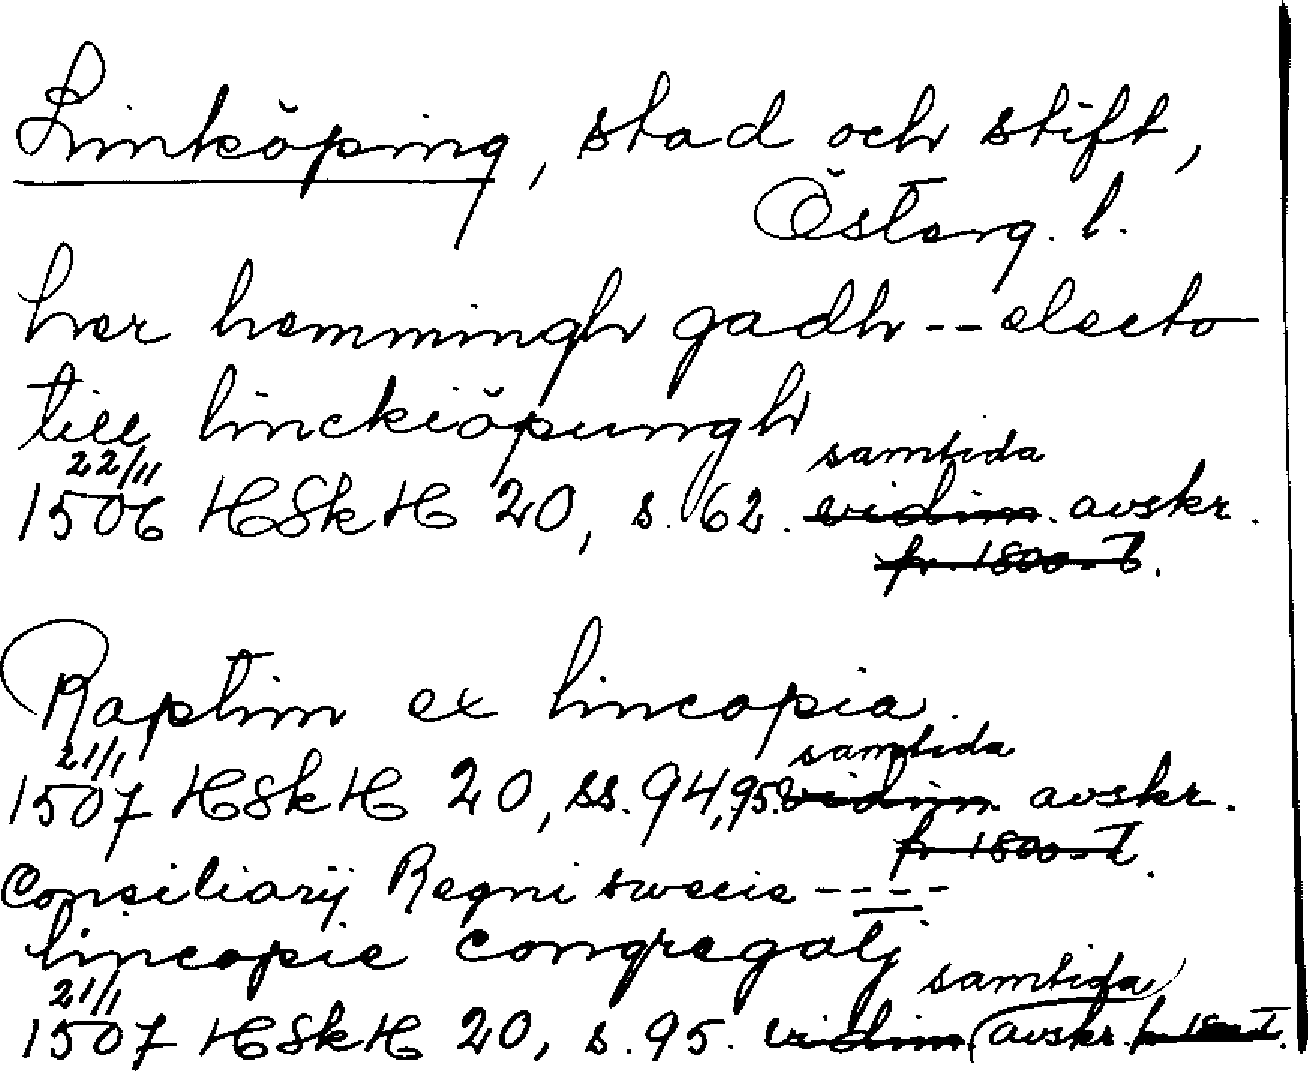 Linköping, stad och stift,
Österg. l.
her hemmingh gadh -- electo
till linckiöpungh
22/11 samtida
1506 HSkH 20, s. 62. vidim. avskr.
fr. 1800-t.
Raptim ex lincopia.
21/1 samtida
1507 HSkH 20, ss. 94, 95. vidim. avskr.
fr. 1800-t.
Consiliarij Regni swecie ----
lincopie congregatj
21/1 samtida
1507 HSkH 20, s. 95. vidim. avskr. fr. 1800-t.